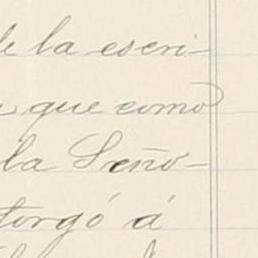 de la escri-
que como
la Seño-
torgó á